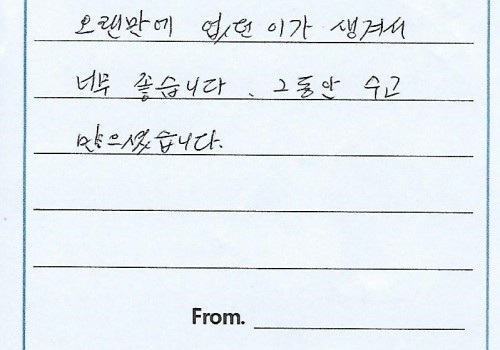 오랜만에 없던 이가 생겨서
너무 좋습니다. 그동안 수고
많으셨습니다.
From.